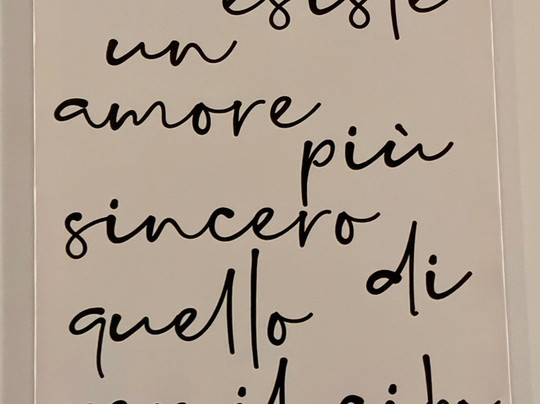 esiste
un
amore
più
sincero
di
quello